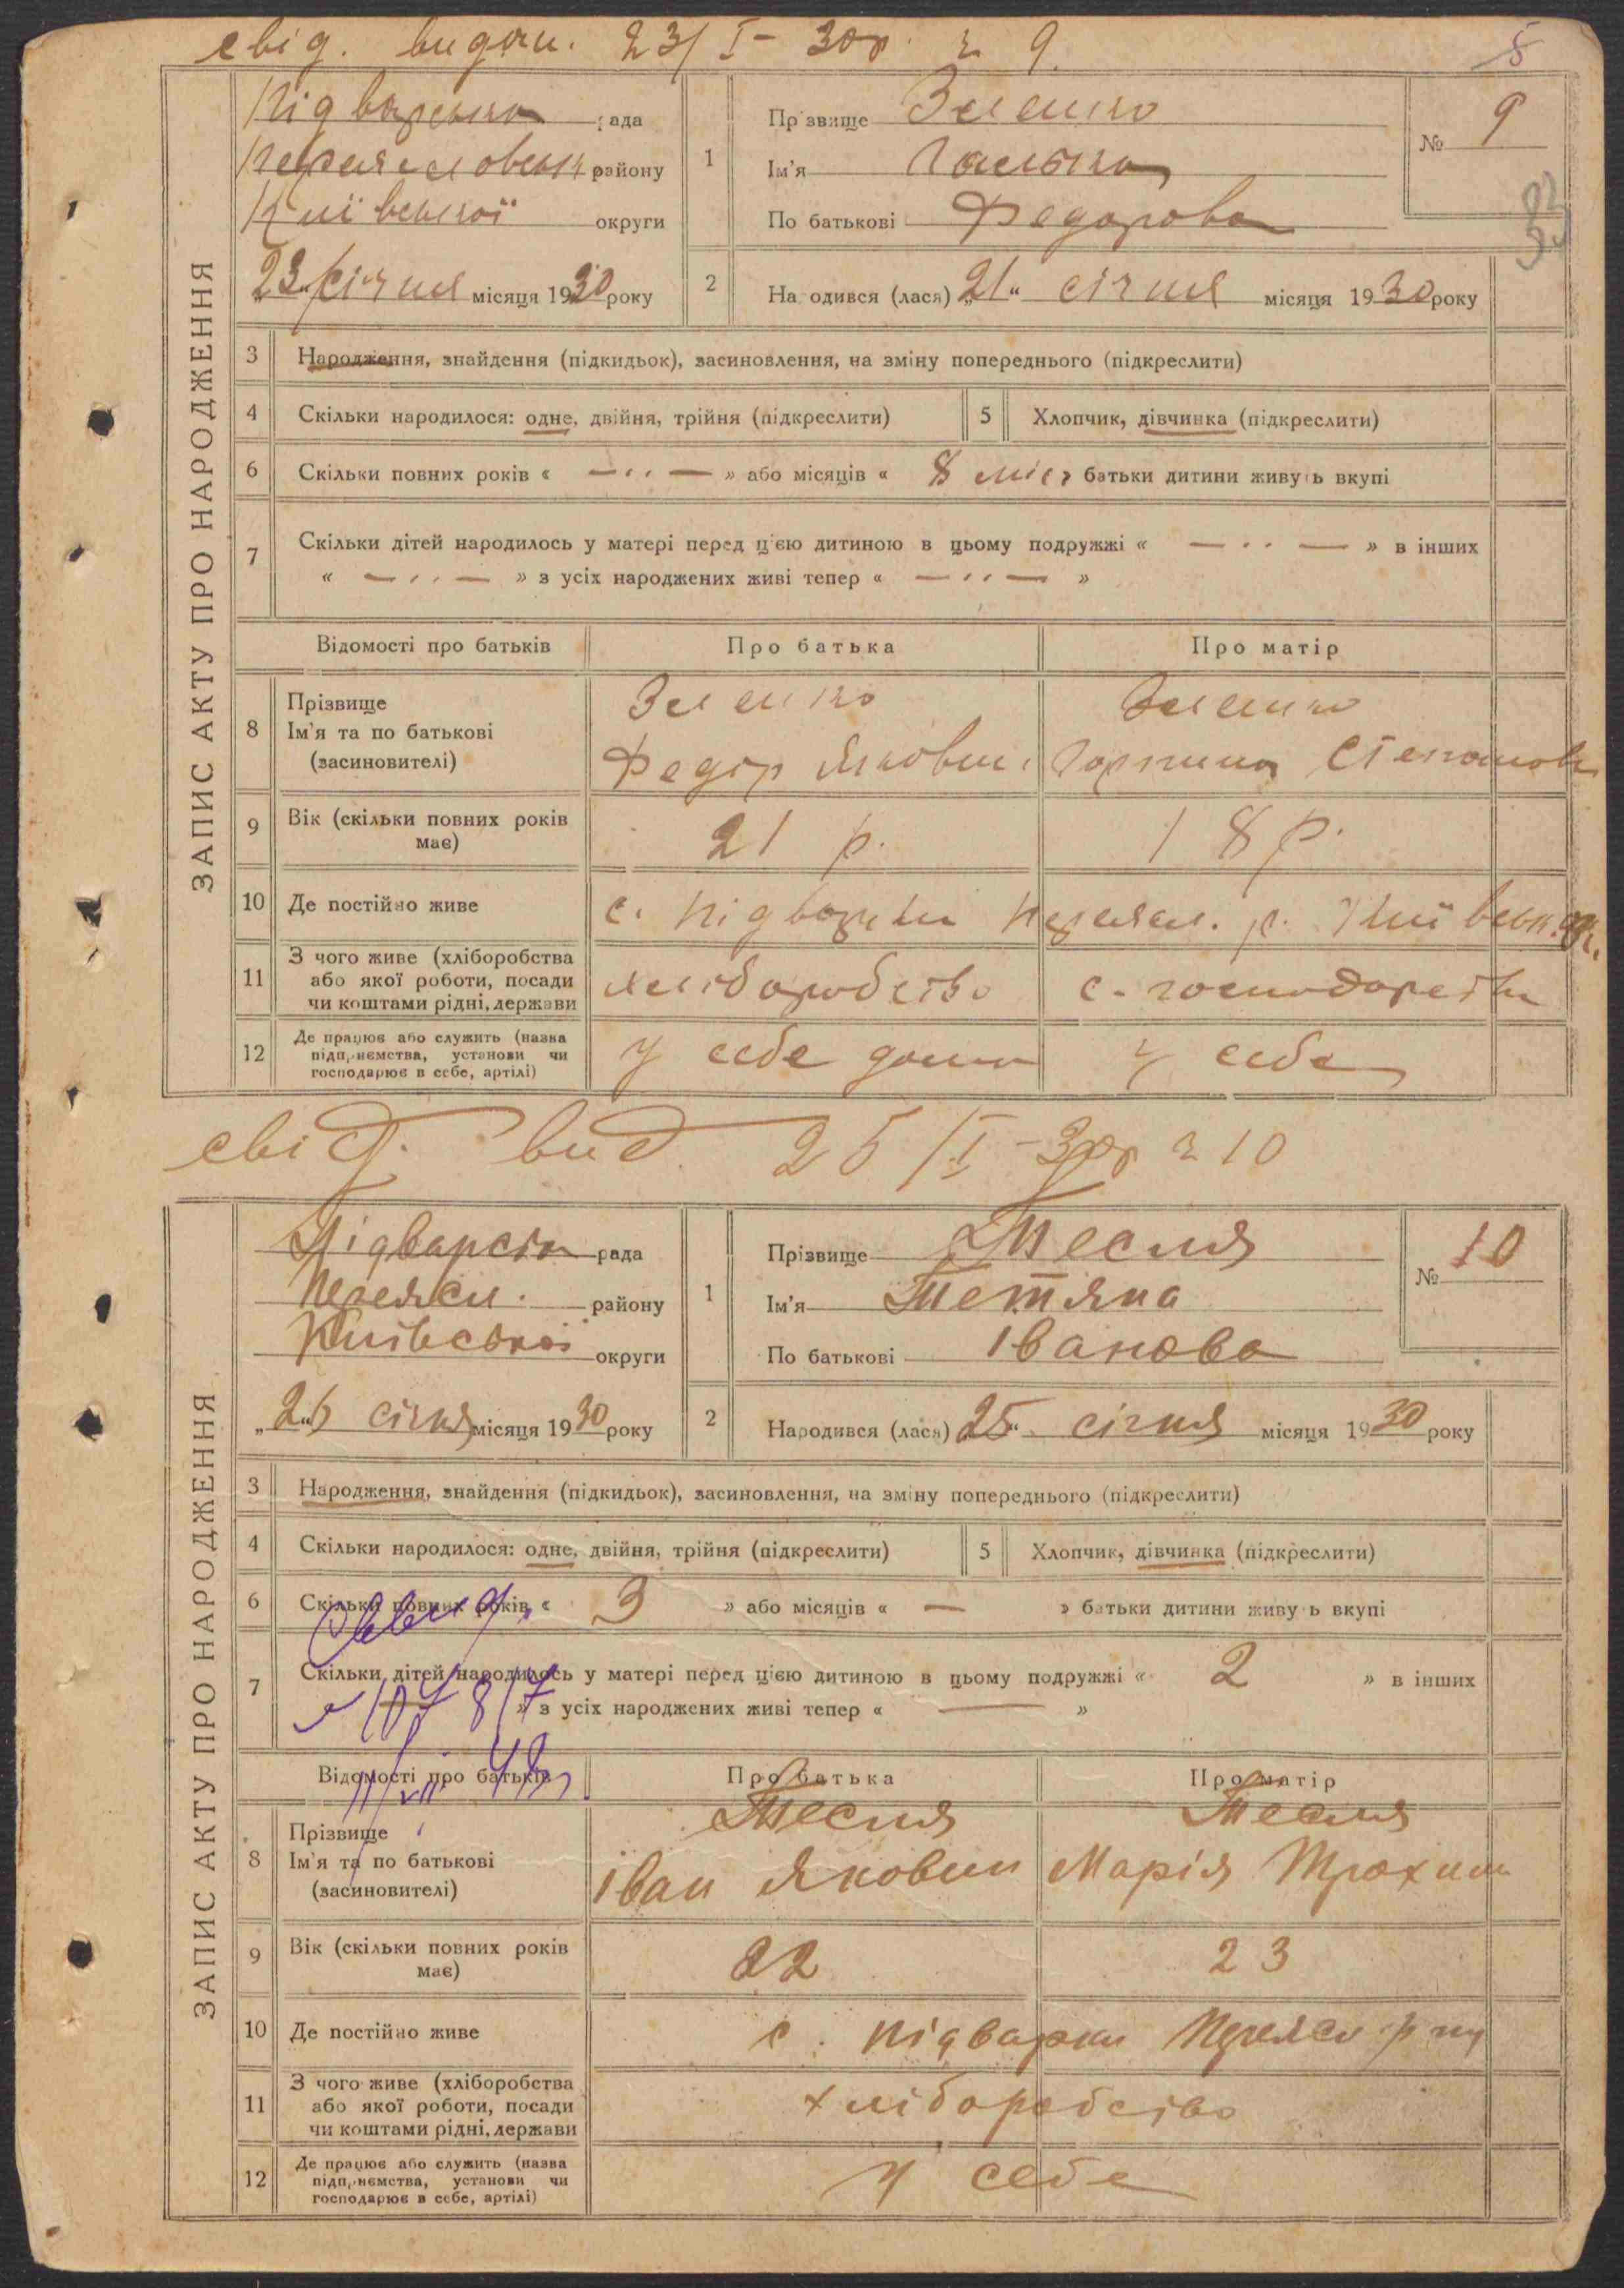 свід. видан. 23/I-30р. ч 9.
5
Підварська рада
Переяславськ району
Київської округи
„23“ січня місяця 1930 року
1
Прізвище Зленко
Ім'я Галька
По батькові Федорова
№ 9
2
Народився (лася) „21“ січня місяця 1930 року
ЗАПИС АКТУ ПРО НАРОДЖЕННЯ
3 Народження, знайдення (підкидьок), засиновлення, на зміну попереднього (підкреслити)
4 Скільки народилося: одне, двійня, трійня (підкреслити) 5 Хлопчик, дівчинка (підкреслити)
6 Скільки повних років « —··— » або місяців « 8 міс » батьки дитини живуть вкупі
7 Скільки дітей народилось у матері перед цією дитиною в цьому подружжі « —··— » в інших
« —··— » з усіх народжених живі тепер « —··— »
Відомості про батьків Про батька Про матір
8 Прізвище Зленко Зленко
Ім'я та по батькові Федір Якович. Горпина Степанов
(засиновителі)
9 Вік (скільки повних років має) 21 р. 18 р.
10 Де постійно живе с. Підварки Переясл. р. Київськ. ок.
11 З чого живе (хліборобства
або якої роботи, посади хліборобство с-господарства
чи коштами рідні, держави
12 Де працює або служить (назва
підприємства, установи чи у себе дома у себе
господарює в себе, артілі)
свід. вид. 25/I-30р ч 10
Підварська рада
Переясл. району
Київської округи
„26“ січня місяця 1930 року
1
Прізвище Тесля
Ім'я Тетяна
По батькові Іванова
№ 10
2
Народився (лася) „25“ січня місяця 1930 року
ЗАПИС АКТУ ПРО НАРОДЖЕННЯ
3 Народження, знайдення (підкидьок), засиновлення, на зміну попереднього (підкреслити)
4 Скільки народилося: одне, двійня, трійня (підкреслити) 5 Хлопчик, дівчинка (підкреслити)
6 Скільки повних років « 3 » або місяців « — » батьки дитини живуть вкупі
7 Скільки дітей народилось у матері перед цією дитиною в цьому подружжі « 2 » в інших
» з усіх народжених живі тепер « — »
Відомості про батьків Про батька Про матір
8 Прізвище Тесля Тесля
Ім'я та по батькові Іван Якович Марія Трохим
(засиновителі)
9 Вік (скільки повних років має) 22 23
10 Де постійно живе с. Підварки Переясл р ну
11 З чого живе (хліборобства
або якої роботи, посади хліборобство
чи коштами рідні, держави
12 Де працює або служить (назва
підприємства, установи чи у себе
господарює в себе, артілі)